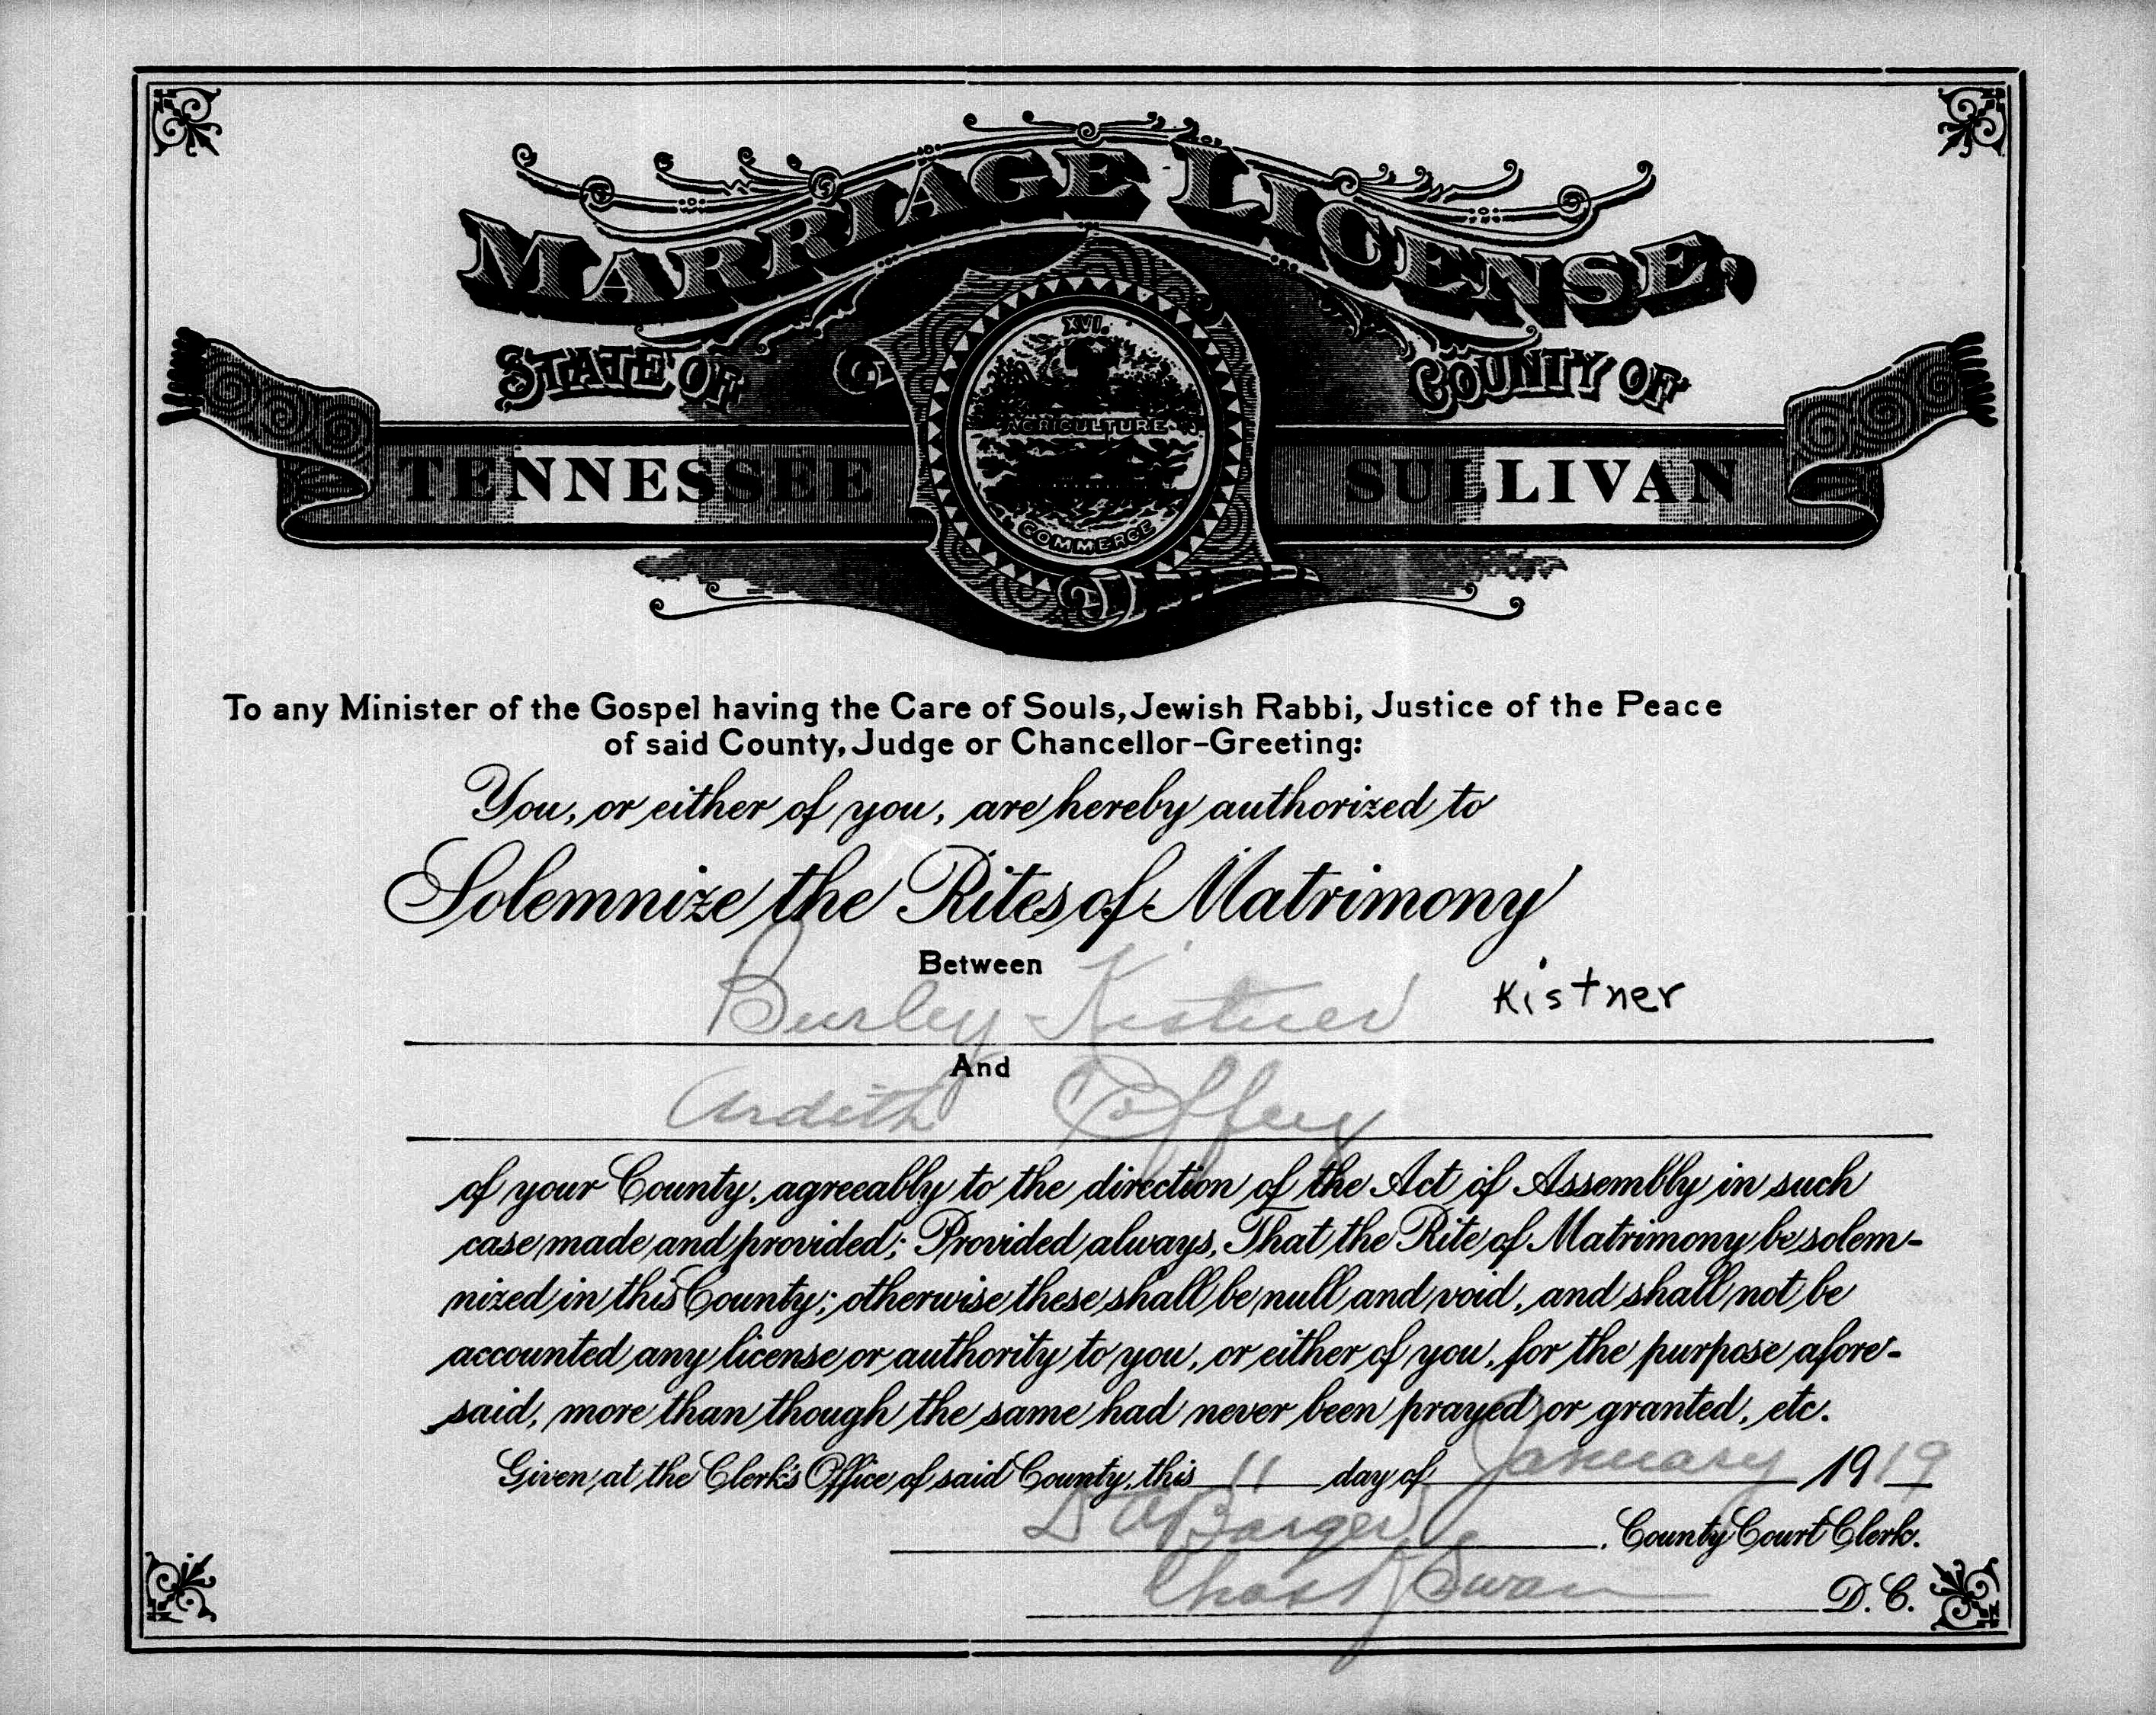 MARRIAGE LICENSE,
STATE OF
COUNTY OF
TENNESSEE
SULLIVAN
XVI.
AGRICULTURE
COMMERCE
To any Minister of the Gospel having the Care of Souls, Jewish Rabbi, Justice of the Peace
of said County, Judge or Chancellor-Greeting:
You, or either of you, are hereby authorized to
Solemnize the Rites of Matrimony
Between
Burley Kistner Kistner
And
Ardith Coffey
of your County, agreeably to the direction of the Act of Assembly in such
case made and provided; Provided always, That the Rite of Matrimony be solem-
nized in this County; otherwise these shall be null and void, and shall not be
accounted any license or authority to you, or either of you, for the purpose afore-
said, more than though the same had never been prayed or granted, etc.
Given at the Clerk's Office of said County, this 11 day of January 1919
Barger, County Court Clerk.
Swan D. C.